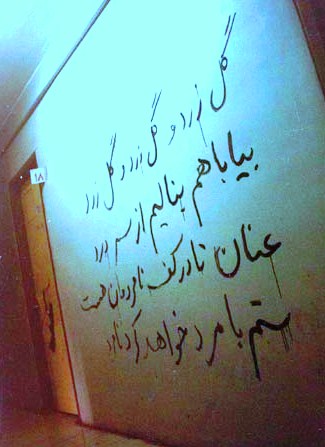 گل زرد و گل زرد و گل زرد
بیا با هم بنالیم از سر درد
عنان تا در کف نامردمان هست
ستم با مرد خواهد کرد نامرد
۱۸